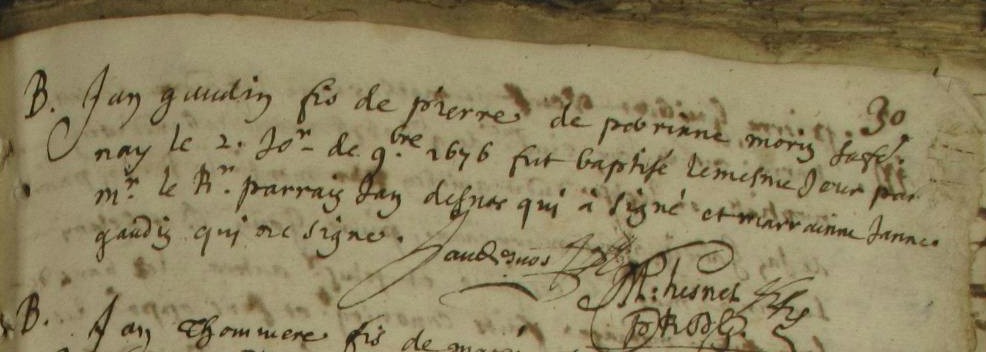 30
B. Jan gaudin fis de pierre de perinne morin sa fe.
nay le 2. Jor de 9.bre 1676 fut baptisé le mesme Jour par
mr. le Rr. parrain Jan desnos qui à signé et marrainne Janne
gaudin qui ne signe.
Jandesnos
M: hesnel
B. Jan Thommere fis de